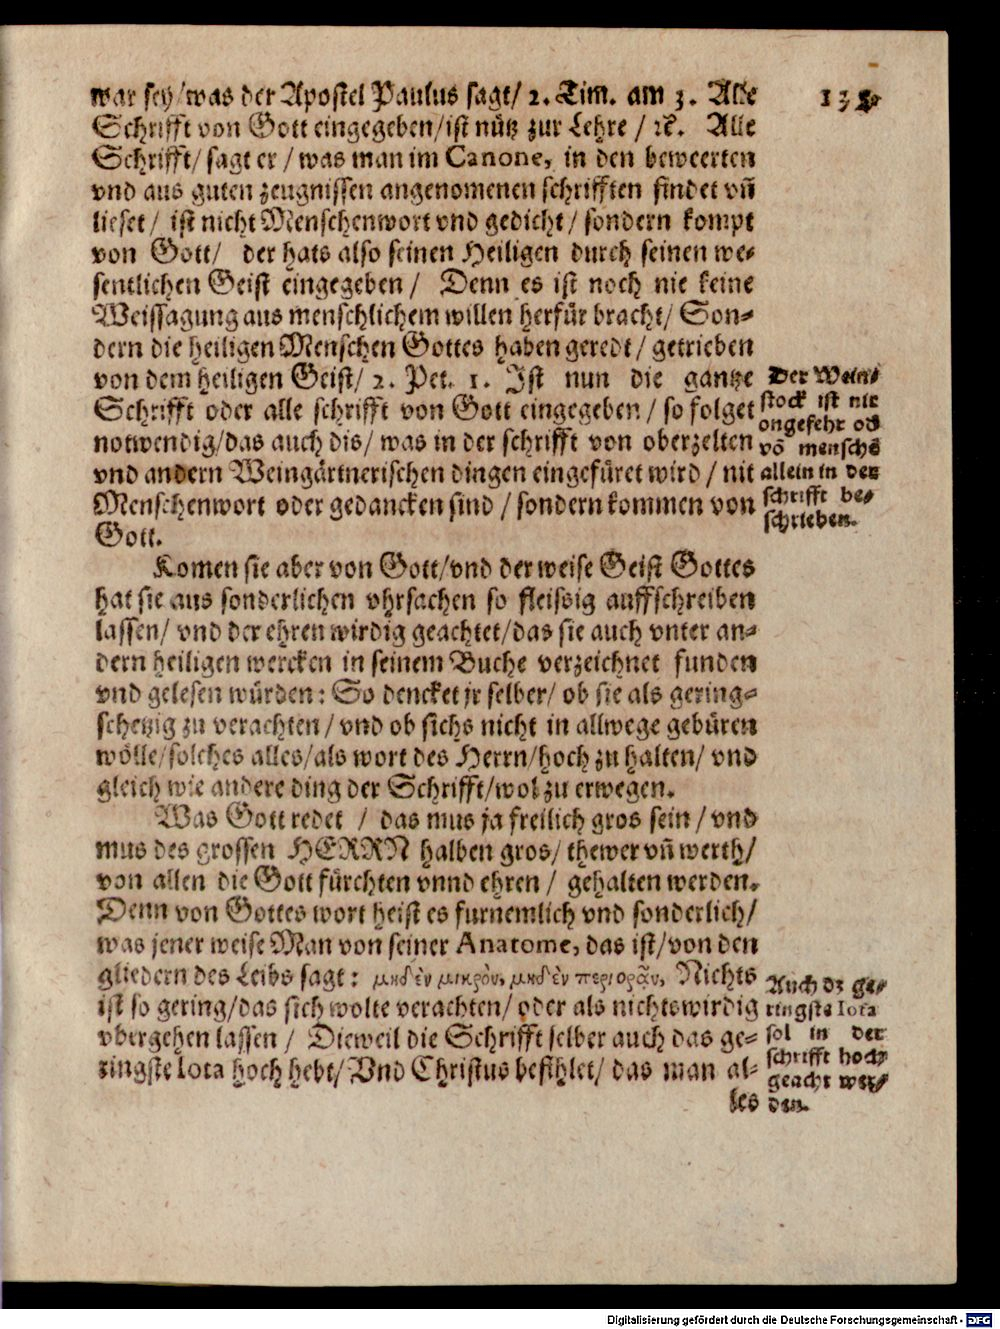 war sey/was der Apostel Paulus sagt/ 2. Tim. am 3. Alle
Schrifft von Gott eingegeben/ist nütz zur Lehre / ꝛc. Alle
Schrifft/ sagt er / was man im Canone, in den beweerten
vnd aus guten zeugnissen angenomenen schrifften findet vñ
lieset / ist nicht Menschenwort vnd gedicht / sondern kompt
von Gott/ der hats also seinen Heiligen durch seinen we-
sentlichen Geist eingegeben / Denn es ist noch nie keine
Weissagung aus menschlichem willen herfür bracht/ Son-
dern die heiligen Menschen Gottes haben geredt / getrieben
von dem heiligen Geist/ 2. Pet. 1. Ist nun die gantze
Schrifft oder alle schrifft von Gott eingegeben / so folget
notwendig/das auch dis / was in der schrifft von oberzelten
vnd andern Weingärtnerischen dingen eingefüret wird / nit
Menschenwort oder gedancken sind / sondern kommen von
Gott.
Der Wein-
stock ist nit
ongefehr od
võ menschẽ
allein in der
schrifft be-
schrieben.
Komen sie aber von Gott/vnd der weise Geist Gottes
hat sie aus sonderlichen vhrsachen so fleissig auffschreiben
lassen/ vnd der ehren wirdig geachtet/das sie auch vnter an-
dern heiligen wercken in seinem Buche verzeichnet funden
vnd gelesen würden: So dencket jr selber/ ob sie als gering-
schetzig zu verachten / vnd ob sichs nicht in allwege gebüren
wölle/solches alles/als wort des Herrn/hoch zu halten/ vnd
gleich wie andere ding der Schrifft/wol zu erwegen.
Was Gott redet / das mus ja freilich gros sein / vnd
mus des grossen HERRN halben gros/ thewer vñ werth/
von allen die Gott fürchten vnnd ehren / gehalten werden.
Denn von Gottes wort heist es furnemlich vnd sonderlich/
was jener weise Man von seiner Anatome, das ist/von den
gliedern des Leibs sagt: μηδ᾽ἐν μικρὸν, μηδ᾽ἐν περιορᾷν, Nichts
ist so gering/das sich wolte verachten/ oder als nichtswirdig
vbergehen lassen / Dieweil die Schrifft selber auch das ge-
ringste Iota hoch hebt/ Vnd Christus befihlet/ das man al-
les
Auch dz ge-
ringste Iota
sol in der
schrifft hoch
geacht wer-
den.
Digitalisierung gefördert durch die Deutsche Forschungsgemeinschaft - DFG